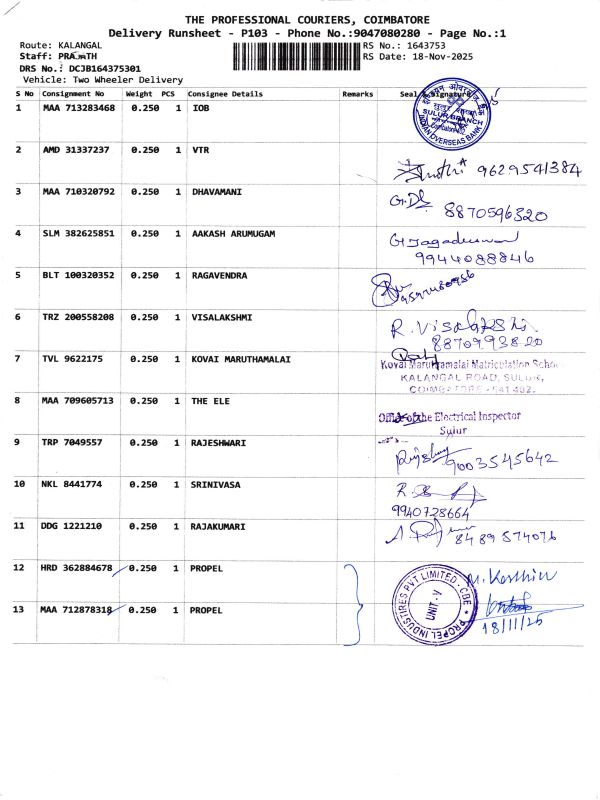 THE PROFESSIONAL COURIERS, COIMBATORE
Delivery Runsheet - P103 - Phone No.:9047080280 - Page No.:1
Route: KALANGAL RS No.: 1643753
Staff: RS Date: 18-Nov-2025
DRS No.: DCJB164375301
Vehicle: Two Wheeler Delivery
S No Consignment No Weight PCS Consignee Details Remarks Seal & Signature
1 MAA 713283468 0.250 1 IOB SULUR BRANCH INDIAN OVERSEAS BANK
2 AMD 31337237 0.250 1 VTR 9629541384
3 MAA 710320792 0.250 1 DHAVAMANI 8870596320
4 SLM 382625851 0.250 1 AAKASH ARUMUGAM G Jagadeeswari
9944088846
5 BLT 100320352 0.250 1 RAGAVENDRA
6 TRZ 200558208 0.250 1 VISALAKSHMI R. Visalakshi
8870993820
7 TVL 9622175 0.250 1 KOVAI MARUTHAMALAI Kovai Maruthamalai Matriculation School
KALANGAL ROAD, SULUR,
COIMBATORE - 641 402.
8 MAA 709605713 0.250 1 THE ELE Office of the Electrical Inspector
Sulur
9 TRP 7049557 0.250 1 RAJESHWARI 9003545642
10 NKL 8441774 0.250 1 SRINIVASA
9940728664
11 DDG 1221210 0.250 1 RAJAKUMARI 8489574076
12 HRD 362884678 0.250 1 PROPEL PROPEL INDUSTRIES PVT LIMITED - CBE UNIT - V
13 MAA 712878318 0.250 1 PROPEL 18/11/25